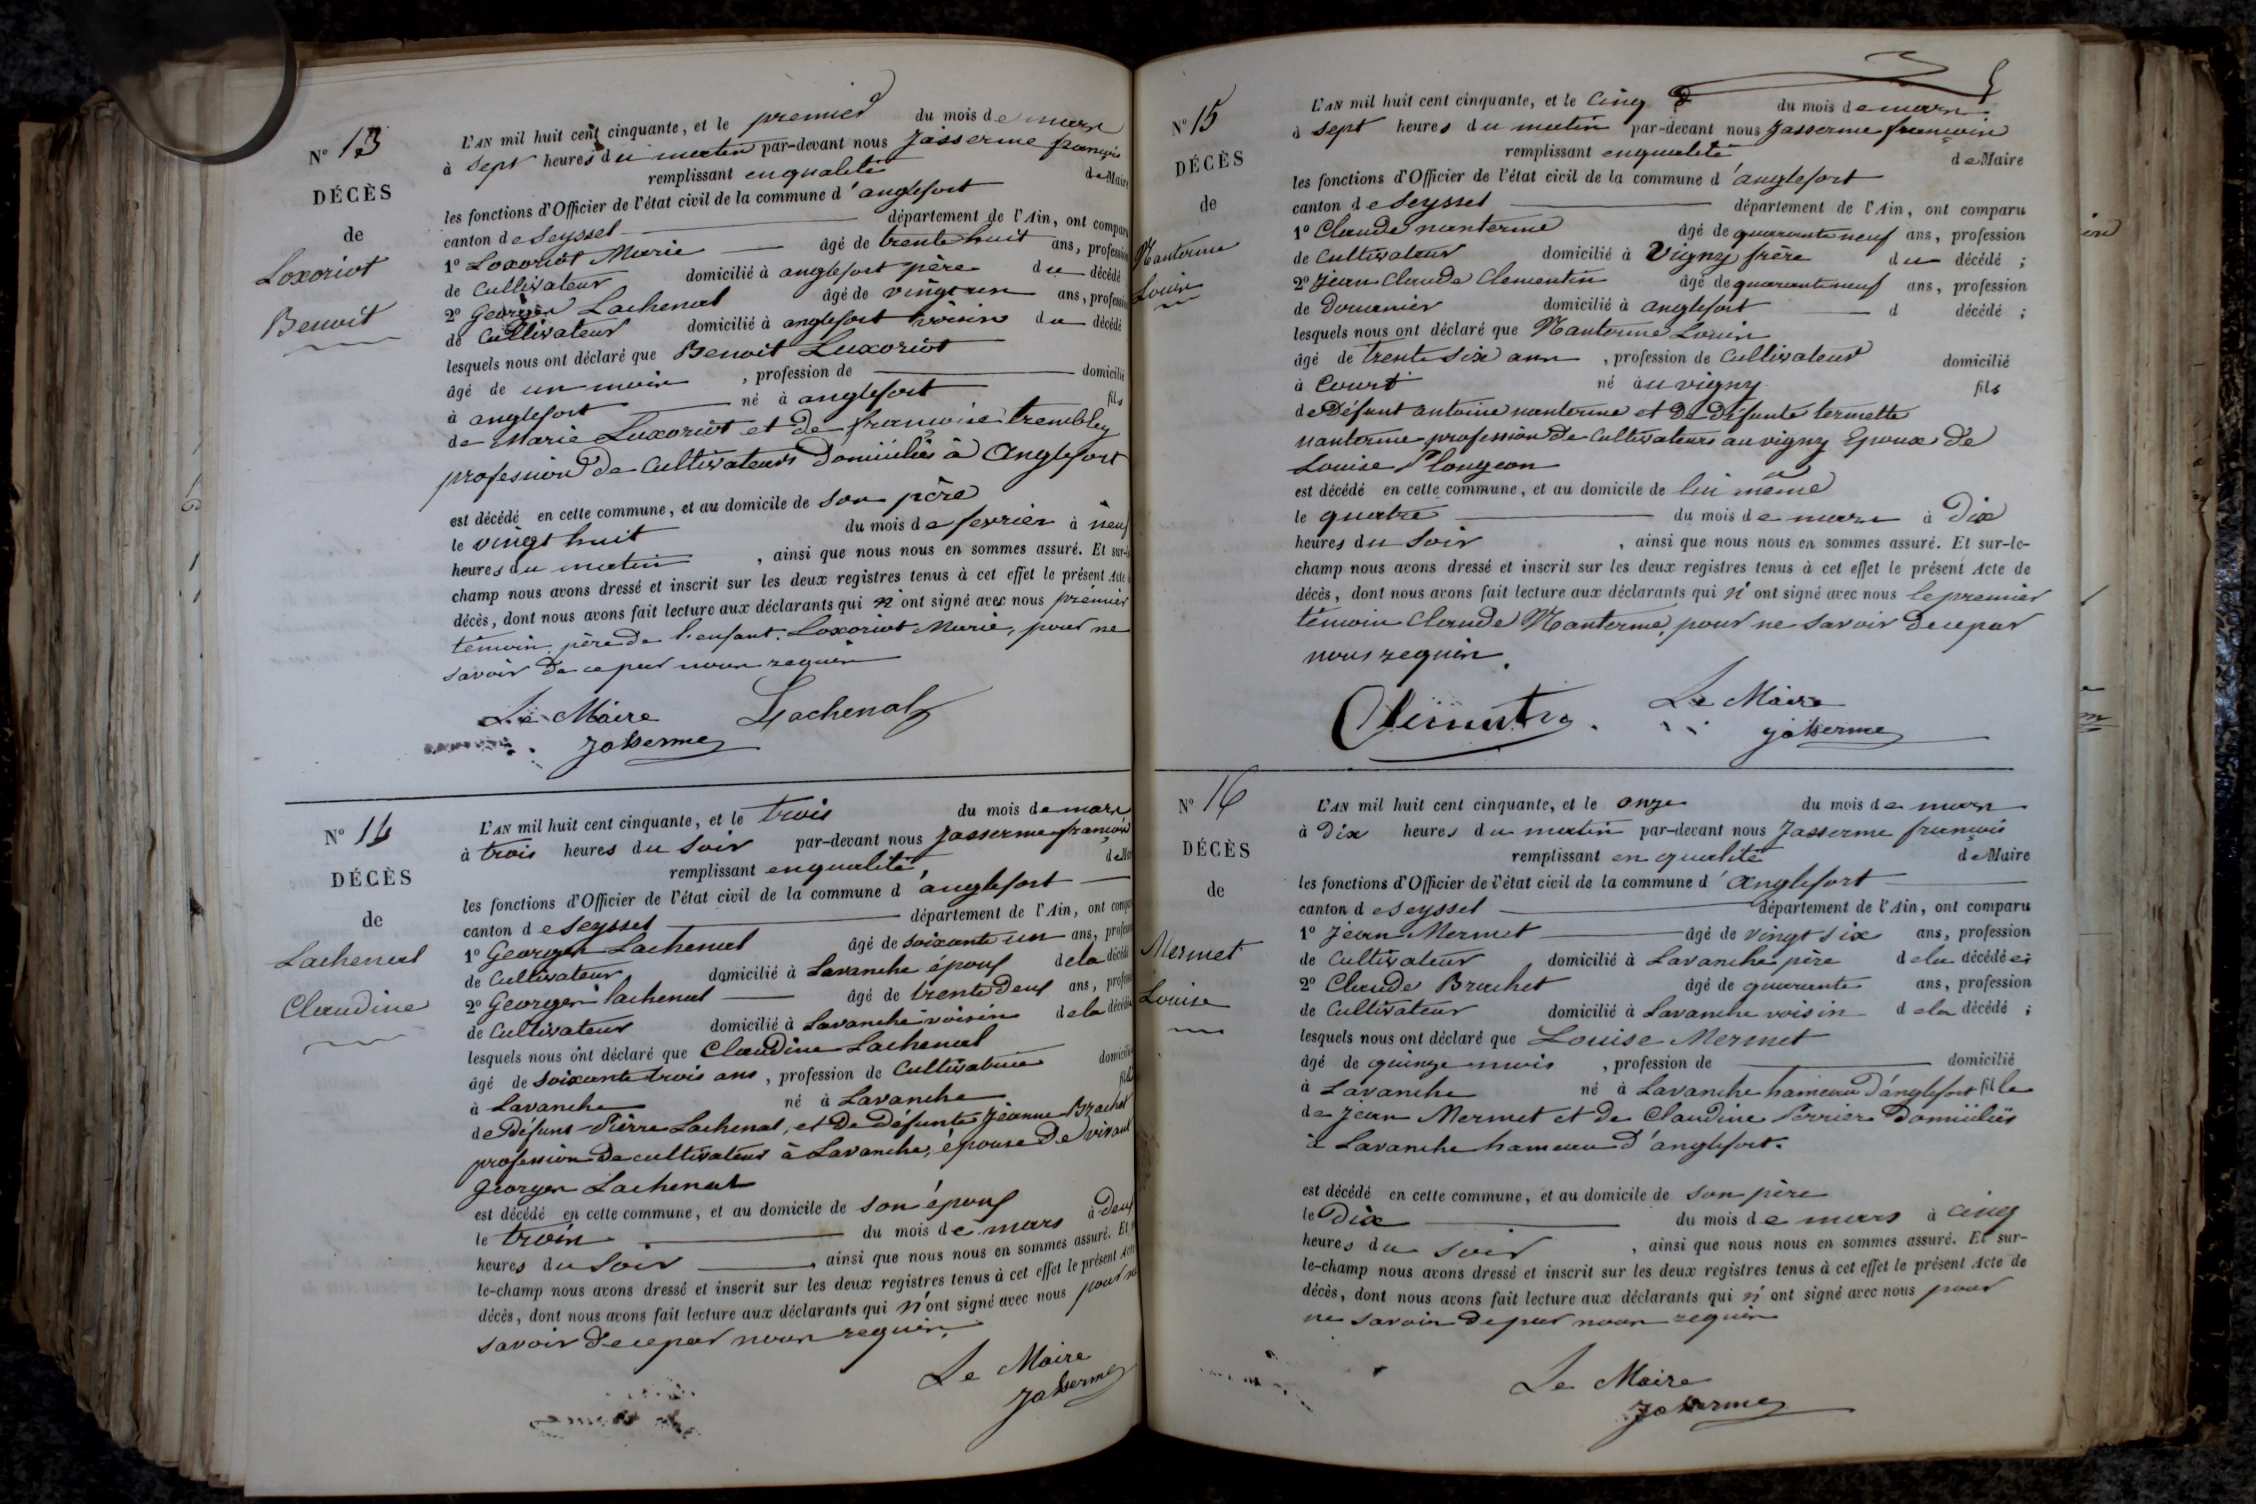 N° 13
DÉCÈS
de
Loxoriot
Benoit
L'AN mil huit cent cinquante, et le premier du mois de mars
à sept heures du matin par-devant nous Jasserme françois
remplissant en qualité de Maire
les fonctions d'Officier de l'état civil de la commune d'anglefort
canton de Seyssel département de l'Ain, ont comparu
1° Loxoriot Marie âgé de trente huit ans, profession
de Cultivateur domicilié à anglefort père du décédé
2° Georges Lachenal âgé de vingt un ans, profession
de Cultivateur domicilié à anglefort voisin du décédé
lesquels nous ont déclaré que Benoit Luxoriot
âgé de un mois , profession de domicilié
à anglefort né à anglefort fils
de Marie Luxoriot et de françoise trembley
profession de Cultivateurs Domiciliés à Anglefort
est décédé en cette commune, et au domicile de son père
le vingt huit du mois de fevrier à neuf
heures du matin , ainsi que nous nous en sommes assuré. Et sur-le-
champ nous avons dressé et inscrit sur les deux registres tenus à cet effet le présent Acte
décès, dont nous avons fait lecture aux déclarants qui n'ont signé avec nous premier
témoin, père de l'enfant, Loxoriot Marie, pour ne
savoir de ce par nous requis
Le Maire Lachenal
Jasserme
N° 14
DÉCÈS
de
Lachenal
Claudine
L'AN mil huit cent cinquante, et le trois du mois de mars
à trois heures du soir par-devant nous Jasserme françois
remplissant en qualité, de Maire
les fonctions d'Officier de l'état civil de la commune d'anglefort
canton de Seyssel département de l'Ain, ont comparu
1° Georges Lachenal âgé de soixante un ans, profession
de Cultivateur domicilié à Lavanche époux de la décédée
2° Georges lachenal âgé de trente Deux ans, profession
de Cultivateur domicilié à Lavanche voisin de la décédée
lesquels nous ont déclaré que Claudine Lachenal
âgé de soixante trois ans , profession de Cultivatrice domicilié
à Lavanche né à Lavanche fille
de Défunt Pierre Lachenal, et De Défunte Jeanne Brachet
profession De cultivateur à Lavanche, épouse De vivant
Georges Lachenal
est décédé en cette commune, et au domicile de son époux
le trois du mois de mars à deux
heures du Soir , ainsi que nous nous en sommes assuré. Et
le-champ nous avons dressé et inscrit sur les deux registres tenus à cet effet le présent Acte
décès, dont nous avons fait lecture aux déclarants qui n'ont signé avec nous pour ne
savoir de ce par nous requis.
Le Maire
Jasserme
N° 15
DÉCÈS
de
Nanterme
Louis
L'AN mil huit cent cinquante, et le Cinq du mois de mars
à sept heures du matin par-devant nous Jasserme françois
remplissant en qualité de Maire
les fonctions d'Officier de l'état civil de la commune d'anglefort
canton de Seyssel département de l'Ain, ont comparu
1° Claude nanterme âgé de quarante neuf ans, profession
de Cultivateur domicilié à Vigny frère du décédé ;
2° Jean Claude Clementin âgé de quarante neuf ans, profession
de Douanier domicilié à anglefort d décédé ;
lesquels nous ont déclaré que Nanterme Louis
âgé de trente six ans , profession de Cultivateur domicilié
à Court né au vigny fils
de Défunt antoine nanterme et De défunte termette
nanterme profession De Cultivateurs au vigny Epoux De
Louise Plongeon
est décédé en cette commune, et au domicile de lui même
le quatre du mois de mars à Dix
heures du Soir , ainsi que nous nous en sommes assuré. Et sur-le-
champ nous avons dressé et inscrit sur les deux registres tenus à cet effet le présent Acte de
décès, dont nous avons fait lecture aux déclarants qui n'ont signé avec nous le premier
témoin Claude Nanterme, pour ne savoir De ce par
nous requis.
Clementin Le Maire
Jasserme
N° 16
DÉCÈS
de
Mermet
Louise
L'AN mil huit cent cinquante, et le onze du mois de mars
à Dix heures du matin par-devant nous Jasserme françois
remplissant en qualité de Maire
les fonctions d'Officier de l'état civil de la commune d'Anglefort
canton de Seyssel département de l'Ain, ont comparu
1° Jean Mermet âgé de vingt six ans, profession
de Cultivateur domicilié à Lavanche père de la décédée ;
2° Claude Brachet âgé de quarante ans, profession
de Cultivateur domicilié à Lavanche voisin de la décédé ;
lesquels nous ont déclaré que Louise Mermet
âgé de quinze mois , profession de domicilié
à Lavanche né à Lavanche hameau d'anglefort fille
de Jean Mermet et de Claudine Perrier Domiciliés
à Lavanche hameau D'anglefort.
est décédé en cette commune, et au domicile de son père
le Dix du mois de mars à cinq
heures du soir , ainsi que nous nous en sommes assuré. Et sur-
le-champ nous avons dressé et inscrit sur les deux registres tenus à cet effet le présent Acte de
décès, dont nous avons fait lecture aux déclarants qui n'ont signé avec nous pour
ne savoir de par nous requis
Le Maire
Jasserme